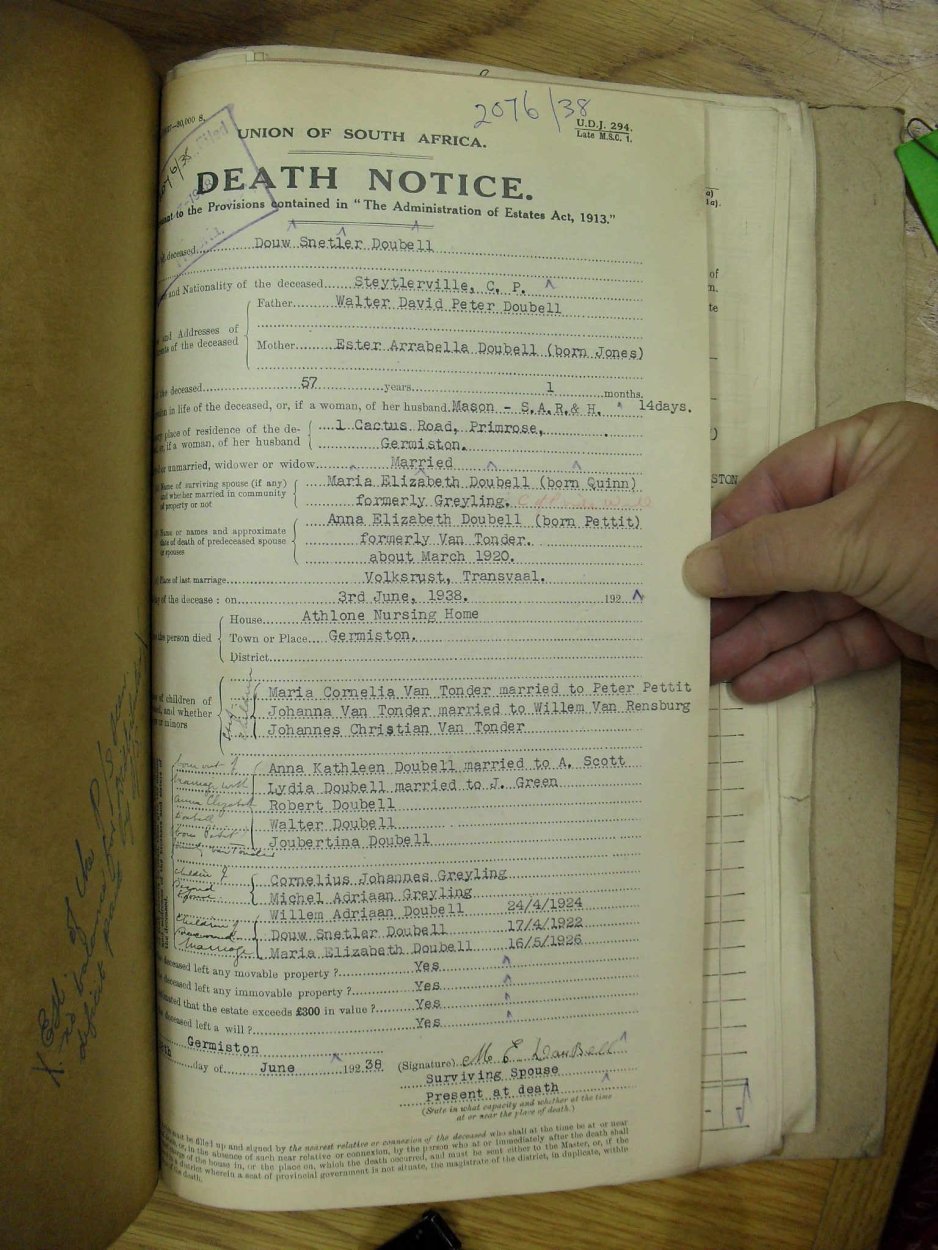 2076/38
U.D.J. 294.
Late M.S.C. 1.
UNION OF SOUTH AFRICA.
DEATH NOTICE.
to the Provisions contained in "The Administration of Estates Act, 1913."
deceased Douw Snetler Doubell
and Nationality of the deceased Steytlerville, C. P.
and Addresses of
of the deceased
Father Walter David Peter Doubell
Mother Ester Arrabella Doubell (born Jones)
the deceased 57 years 1 months.
in life of the deceased, or, if a woman, of her husband Mason - S.A.R.& H. 14days.
place of residence of the de-
if a woman, of her husband
1 Cactus Road, Primrose,
Germiston.
or unmarried, widower or widow Married
Name of surviving spouse (if any)
and whether married in community
of property or not
Maria Elizabeth Doubell (born Quinn)
formerly Greyling.
Name or names and approximate
date of death of predeceased spouse
or spouses
Anna Elizabeth Doubell (born Pettit)
formerly Van Tonder.
about March 1920.
Place of last marriage Volksrust, Transvaal.
of the decease : on 3rd June, 1938. 192
the person died
House Athlone Nursing Home
Town or Place Germiston.
District
of children of
and whether
or minors
Maria Cornelia Van Tonder married to Peter Pettit
Johanna Van Tonder married to Willem Van Rensburg
Johannes Christian Van Tonder
born out of
marriage with
Anna Elizabeth
Doubell
born Pettit
Van Tonder
Anna Kathleen Doubell married to A. Scott
Lydia Doubell married to J. Green
Robert Doubell
Walter Doubell
Joubertina Doubell
children of
Second
Spouse
Cornelius Johannes Greyling
Michel Adriaan Greyling
Children of
Second
Marriage
Willem Adriaan Doubell 24/4/1924
Douw Snetler Doubell 17/4/1922
Maria Elizabath Doubell 16/5/1926
deceased left any movable property ? Yes
deceased left any immovable property ? Yes
that the estate exceeds £300 in value ? Yes
deceased left a will ? Yes
Germiston
day of June 192 38
(Signature)
Surviving Spouse
Present at death
(State in what capacity and whether at the time
at or near the place of death.)
must be filled up and signed by the nearest relative or connexion of the deceased who shall at the time be at or near
or, in the absence of such near relative or connexion, by the person who at or immediately after the death shall
of the house in, or the place on, which the death occurred, and must be sent either to the Master, or, if the
district wherein a seat of provincial government is not situate, the magistrate of the district, in duplicate, within
the death.